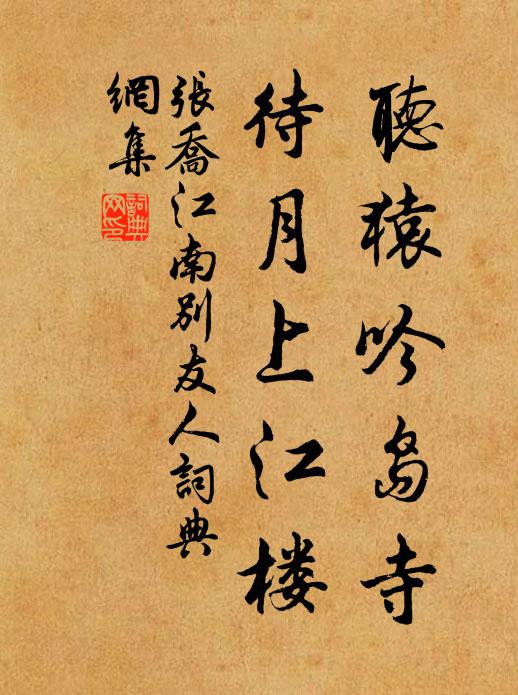 聽猿吟島寺
待月上江楼
張喬江南別友人詞典
網集
詞典
网印